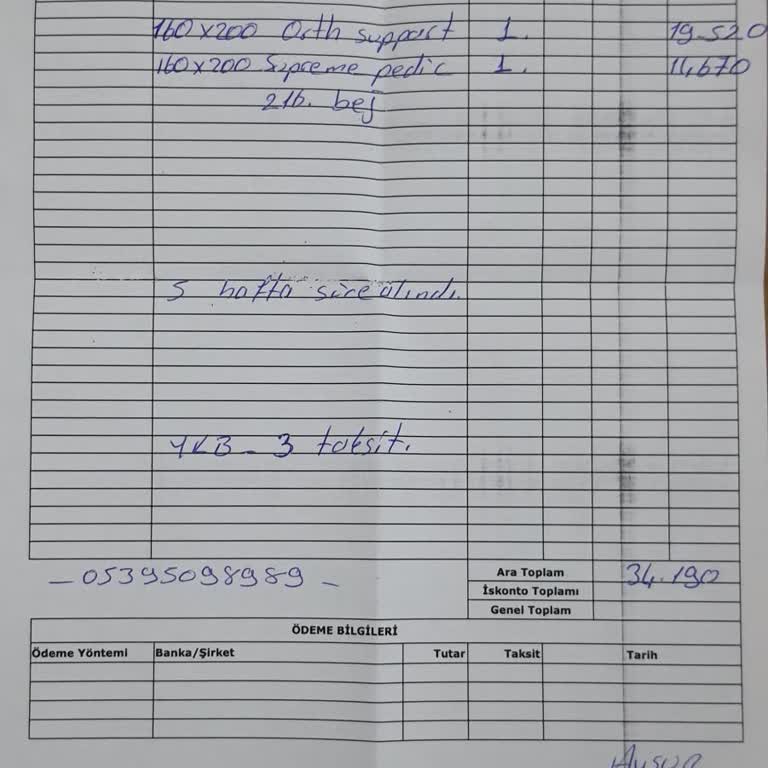 160x200 Orth support 1. 19.520
160x200 Supreme pedic 1. 14.670
216. bej
5 hafta süre alındı.
YKB - 3 taksit.
- 05395098989 -
Ara Toplam 34.190
İskonto Toplamı
Genel Toplam
ÖDEME BİLGİLERİ
Ödeme Yöntemi Banka/Şirket Tutar Taksit Tarih